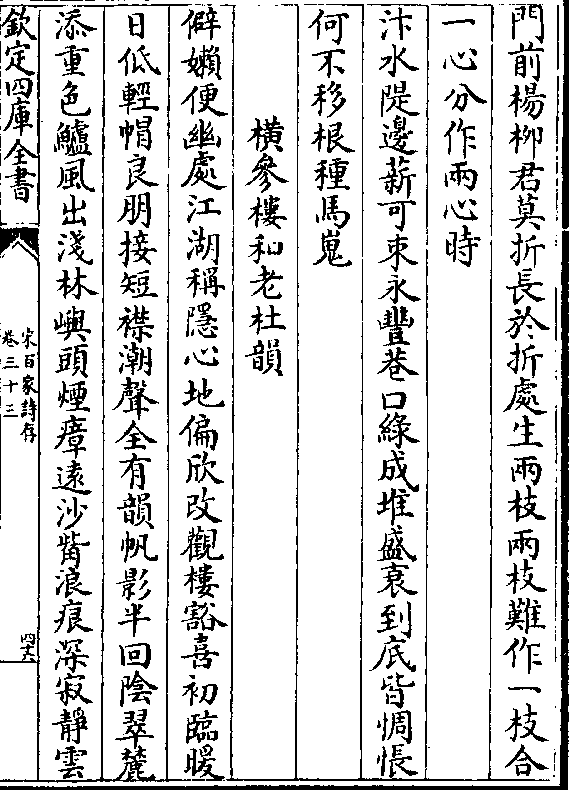 門前楊柳君莫折長於折處生兩枝兩枝難作一枝合
一心分作兩心時
汴水隄邊薪可束永豐巷口緑成堆盛衰到底皆惆悵
何不移根種馬嵬
橫參樓和老杜韻
僻嬾便幽處江湖稱隱心地偏欣改觀樓豁喜初臨暖
日低輕帽良朋接短襟潮聲全有韻帆影半回陰翠麓
添重色鱸風出淺林嶼頭煙瘴遠沙觜浪痕深寂靜雲
欽定四庫全書
宋百家詩存
卷三十三
四六